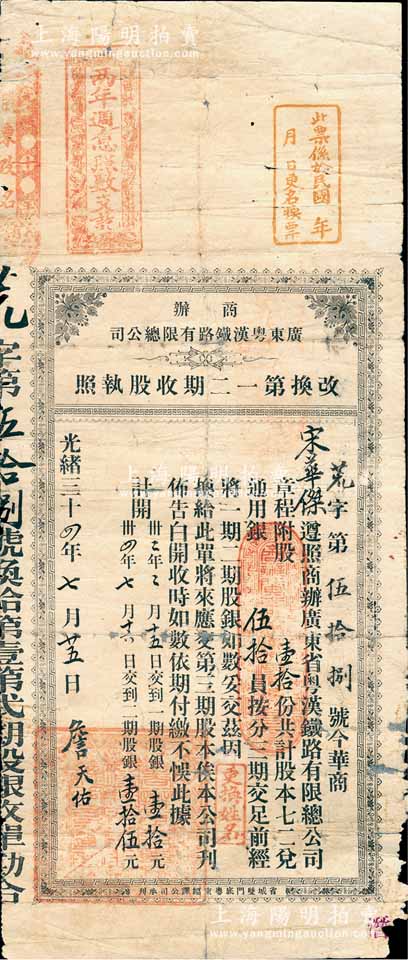 上海陽明拍賣
www.yangmingauction.com
此票係於民國　年
月　日更名換票
兩年週息照數交訖
商辦
廣東粵漢鐵路有限總公司
改換第一二期收股執照
荒字第伍拾捌號今華商
宋華傑遵照商辦廣東省粵漢鐵路有限總公司
章程附股壹拾份共計股本七二兌
通用銀伍拾員按分三期交足前經
將一期二期股銀如數妥交茲因
換給此單將來應交第三期股本俟本公司刋
佈告白開收時如數依期付繳不悞此據
計開
卅二年三月十五日交到一期股銀壹拾元
卅四年七月十六日交到二期股銀壹拾伍元
光緒三十四年七月廿五日
詹天佑
更換姓名
荒字第伍拾捌號換給第壹第弍期股銀收單勘合